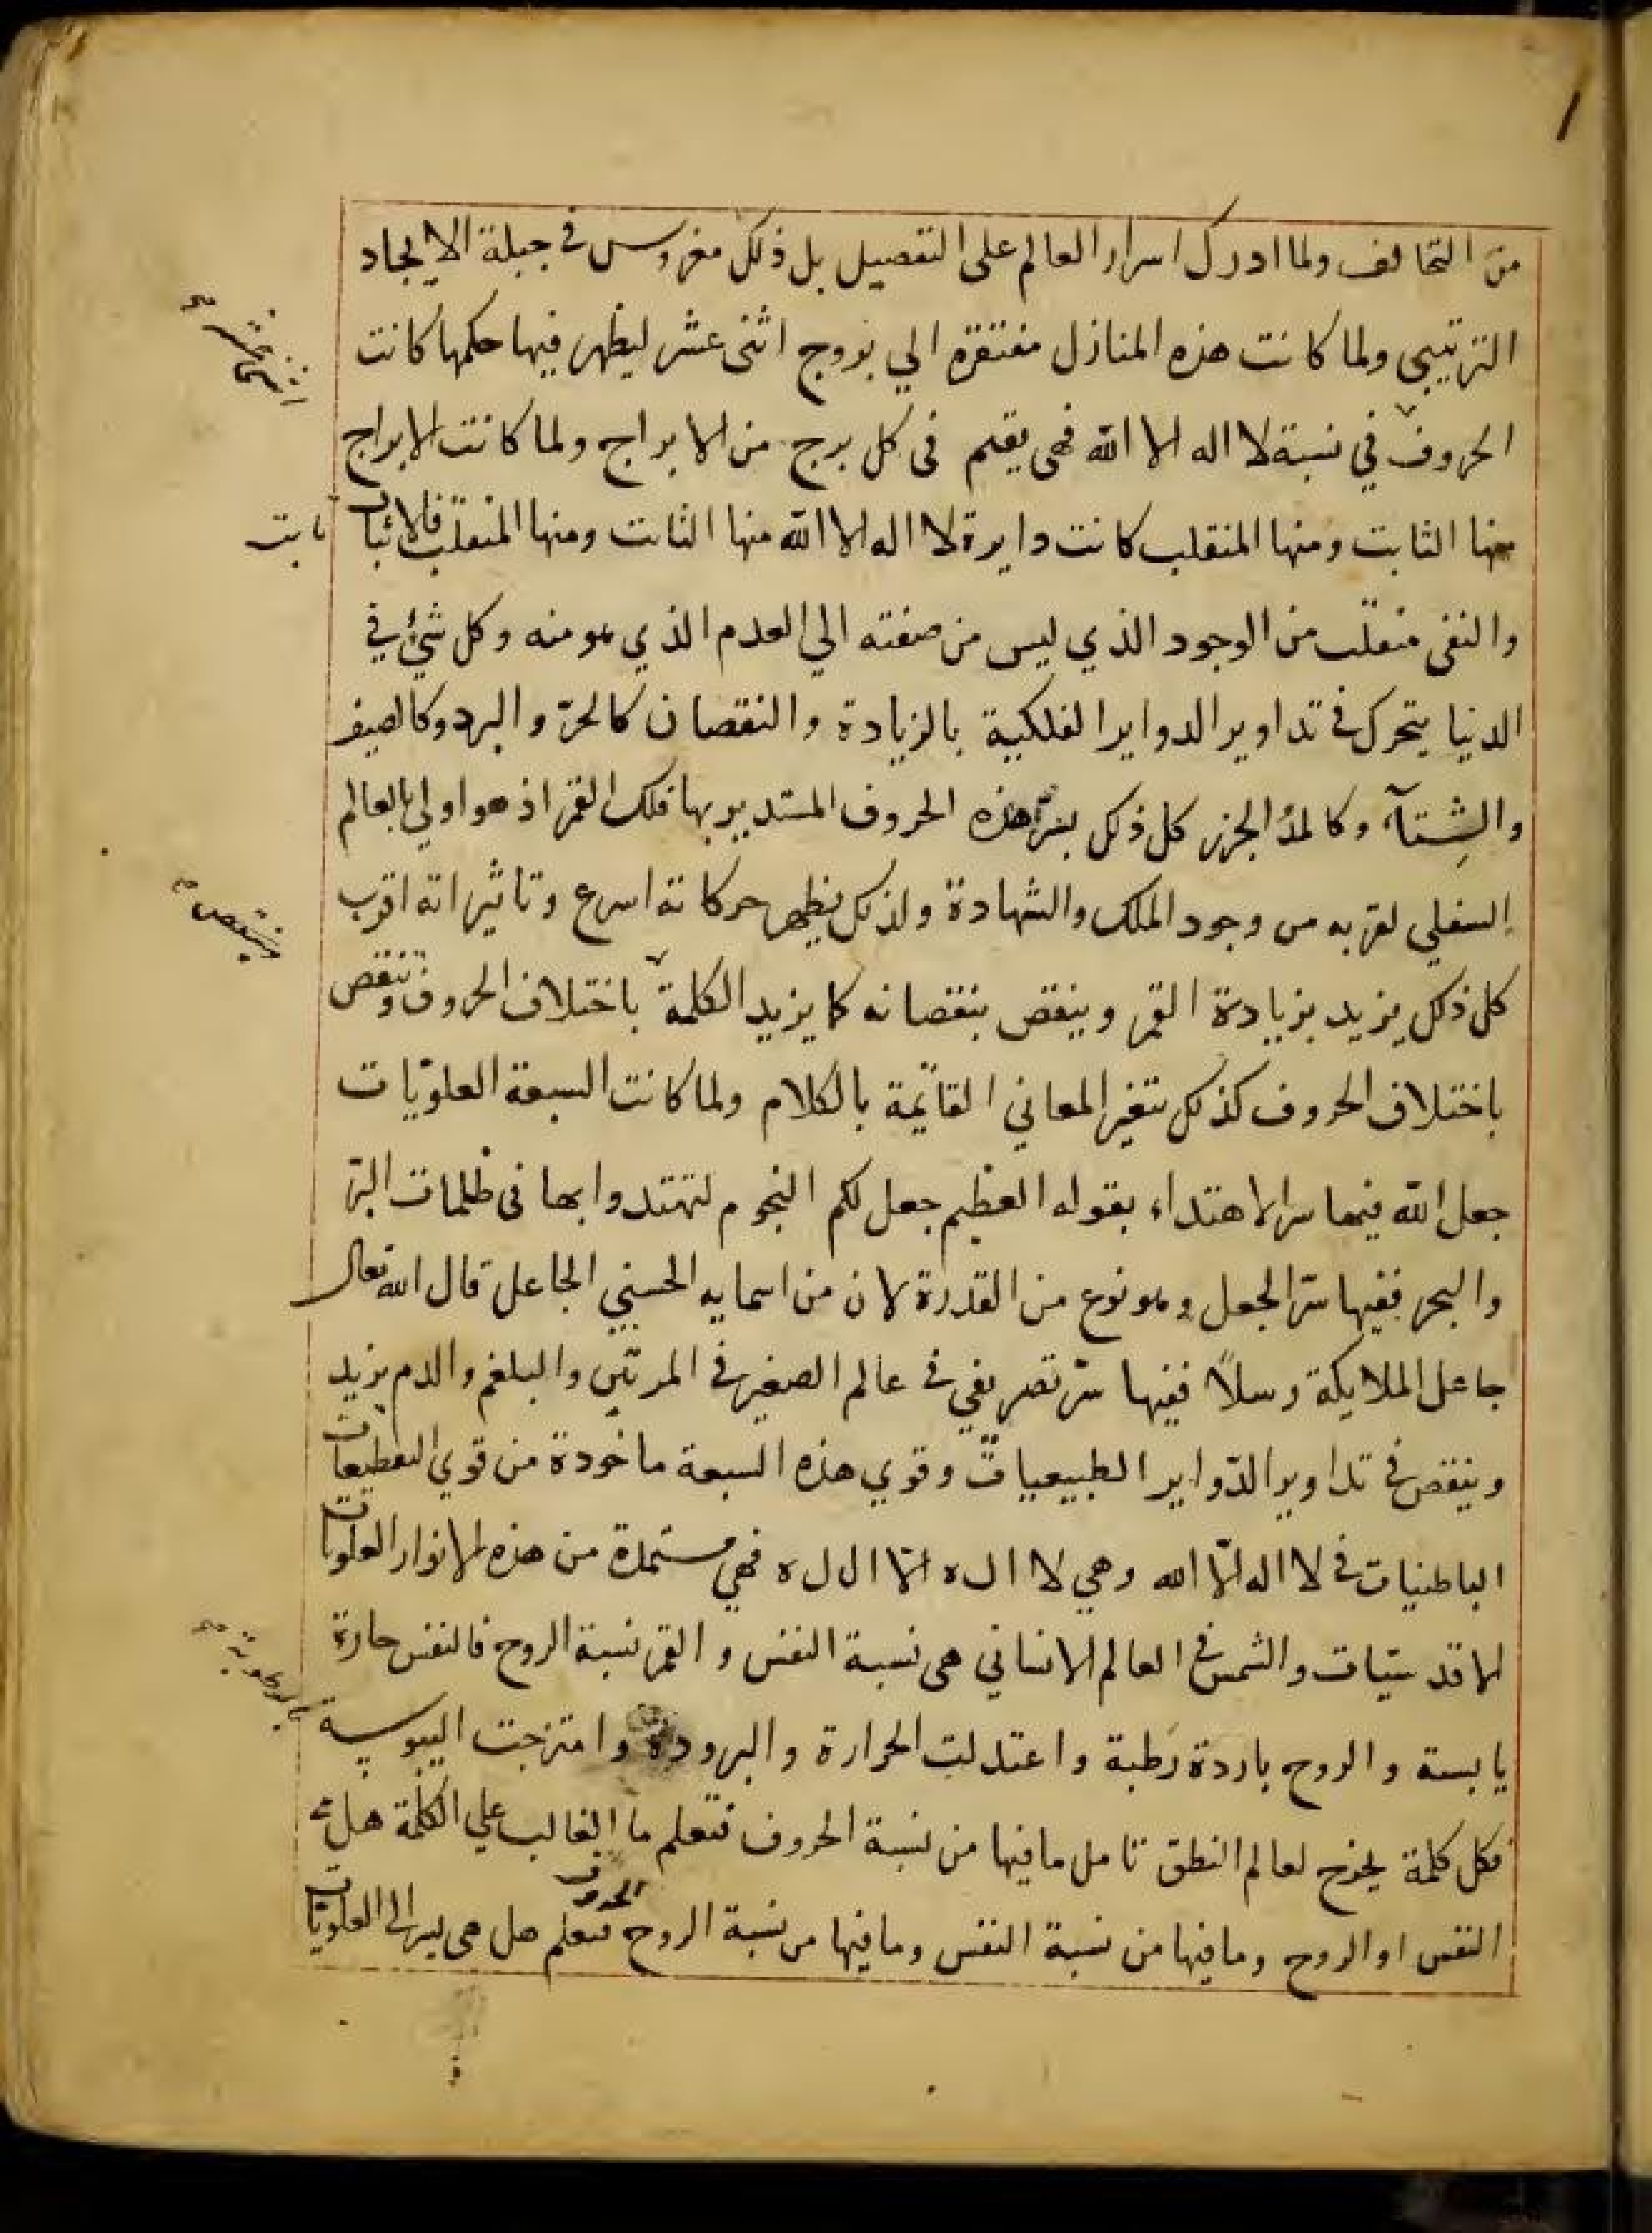 من التحالف ولما ادرك اسرار العالم على التفصيل بل ذلك مغروس في جبلة الايجاد
الترتيبي ولما كانت هذه المنازل مفتقرة الي بروج اثنى عشر ليظهر فيها حكمها كانت
اثنى عشر صح
الحروف في نسبة لا اله الا الله فهى يقيم فى كل برج من الابراج ولما كانت الابراج
منها الثابت ومنها المنقلب كانت دايرة لا اله الا الله منها الثابت ومنها المنقلب فالاثبات
ثابت
والنفى منقلب من الوجود الذي ليس من صفته الي العدم الذي هو منه وكل شئ في
الدنيا يتحرك في تداوير الدواير الفلكية بالزيادة والنقصان كالحرّ والبرد وكالصيف
والشِتآء وكالمدّ الجزر كل ذلك بسرّ هذه الحروف المستدير بها فلك القمر اذ هو اولي بالعالم
السفلي لقربه من وجود الملك والشهادة ولذلك يظهر حركاته اسرع وتاثيراته اقرب
كل ذلك يزيد بزيادة القمر وينقص بنقصانه كما يزيد الكلمة باختلاف الحروف وتنقص
وينقص صح
باختلاف الحروف كذلك تتغير المعاني القائمة بالكلام ولما كانت السبعة العلويّات
جعل الله فيها سر الاهتداء بقوله العظيم جعل لكم النجوم لتهتدوا بها فى ظلمات البرّ
والبحر ففيها سرّ الجعل وهو نوع من القدرة لان من اسمايه الحسني الجاعل قال الله تعالى
جاعل الملايكة رسلاً ففيها سرّ تصريفي في عالم الصغير في المرتين والبلغم والدم يزيد
وينقص في تداوير الدّواير الطبيعيات وقوي هذه السبعة ماخوذة من قوي التقطيعات
الباطنيات في لا اله الّا الله وهي لا ا ل ه الّا ا ل ل ه فهي مستمدة من هذه الانوار العلويات
الاقدسيّات والشمس في العالم الانساني هى نسبة النفس والقمر نسبة الروح فالنفس حارة
يابسة والروح باردة رَطبة واعتدلت الحرارة والبرودة وامتزجت اليبوسة
بالرطوبة صح
فكل كلمة يخرج لعالم النطق تامل ما فيها من نسبة الحروف فتعلم ما الغالب علي الكلمة هل
النفس او الروح وما فيها من نسبة النفس وما فيها من نسبة الروح الحروف فتعلم هل هى الى العلويّات